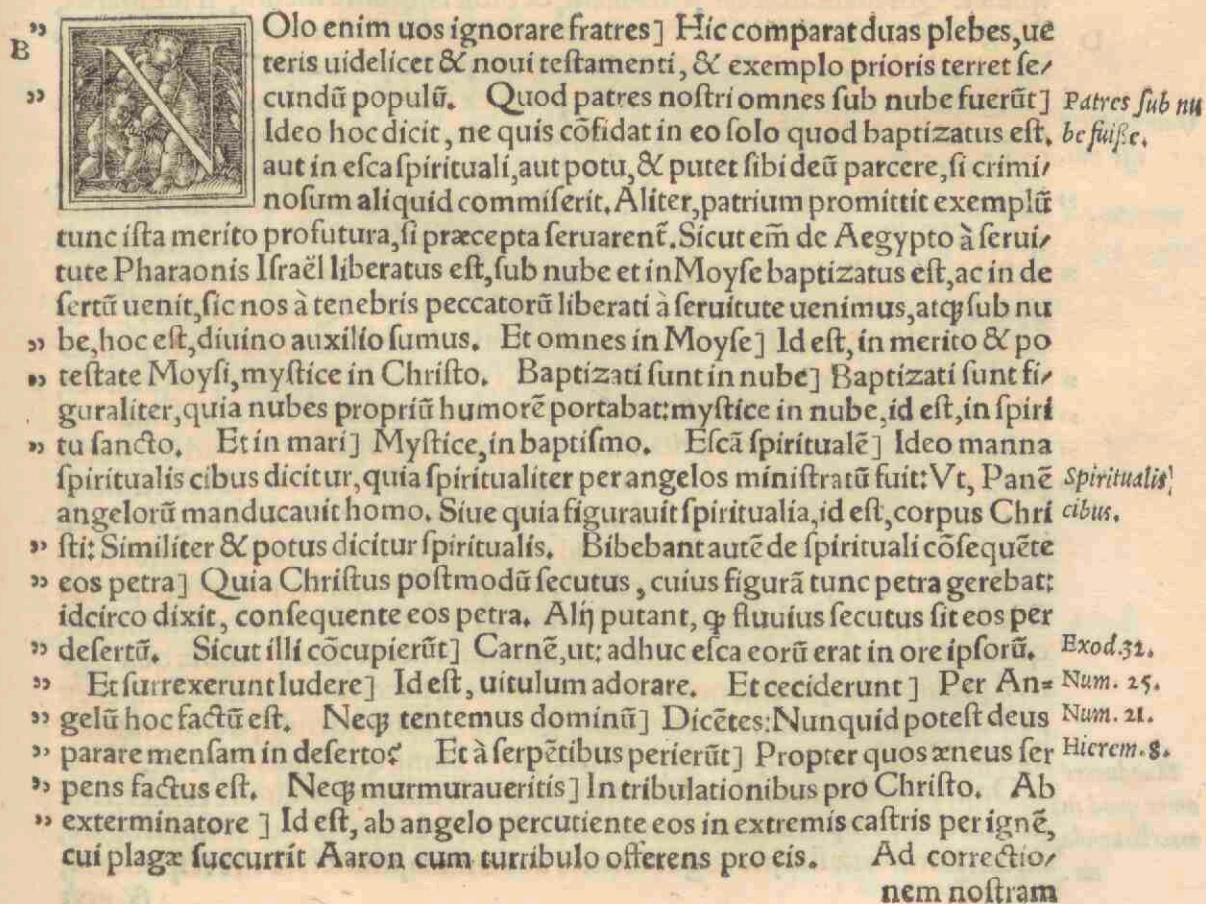 B
NOlo enim uos ignorare fratres] Hic comparat duas plebes,ue
teris uidelicet & noui teſtamenti, & exemplo prioris terret ſe/
cundū populū. Quod patres noſtri omnes ſub nube fuerūt]
Patres ſub nu
Ideo hoc dicit, ne quis cōfidat in eo ſolo quod baptizatus eſt,
be fuiſſe.
aut in eſca ſpirituali,aut potu,& putet ſibi deū parcere,ſi crimi/
noſum aliquid commiſerit.Aliter,patrium promittit exemplū
tunc iſta merito profutura,ſi præcepta ſeruarent̃.Sicut em̃ de Aegypto à ſerui/
tute Pharaonis Iſraël liberatus eſt,ſub nube et in Moyſe baptizatus eſt,ac in de
ſertū uenit,ſic nos à tenebris peccatorū liberati à ſeruitute uenimus,atqꝫ ſub nu
„ be,hoc eſt,diuino auxilio ſumus. Et omnes in Moyſe] Id eſt, in merito & po
„ teſtate Moyſi,myſtice in Chriſto. Baptizati ſunt in nube] Baptizati ſunt fi/
guraliter,quia nubes propriū humorē portabat:myſtice in nube,id eſt,in ſpiri
„ tu ſancto. Et in mari] Myſtice,in baptiſmo. Eſcā ſpiritualē] Ideo manna
ſpiritualis cibus dicitur,quia ſpiritualiter per angelos miniſtratū fuit:Vt, Panē
Spiritualis
angelorū manducauit homo. Siue quia figurauit ſpiritualia,id eſt,corpus Chri
cibus.
„ ſti: Similiter & potus dicitur ſpiritualis. Bibebant autē de ſpirituali cōſequēte
„ eos petra] Quia Chriſtus poſtmodū ſecutus, cuius figurā tunc petra gerebat:
idcirco dixit, conſequente eos petra. Alij putant, ꝙ fluuius ſecutus ſit eos per
„ deſertū. Sicut illi cōcupierūt] Carnē,ut: adhuc eſca eorū erat in ore ipſorū.
Exod.32.
„ Et ſurrexerunt ludere] Id eſt, uitulum adorare. Et ceciderunt] Per An=
Num. 25.
„ gelū hoc factū eſt. Neqꝫ tentemus dominū] Dicētes:Nunquid poteſt deus
Num. 21.
„ parare menſam in deſerto? Et à ſerpētibus perierūt] Propter quos æneus ſer
Hierem.8.
„ pens factus eſt. Neqꝫ murmuraueritis] In tribulationibus pro Chriſto. Ab
„ exterminatore ] Id eſt, ab angelo percutiente eos in extremis caſtris per ignē,
cui plagæ ſuccurrit Aaron cum turribulo offerens pro eis. Ad correctio/
nem noſtram